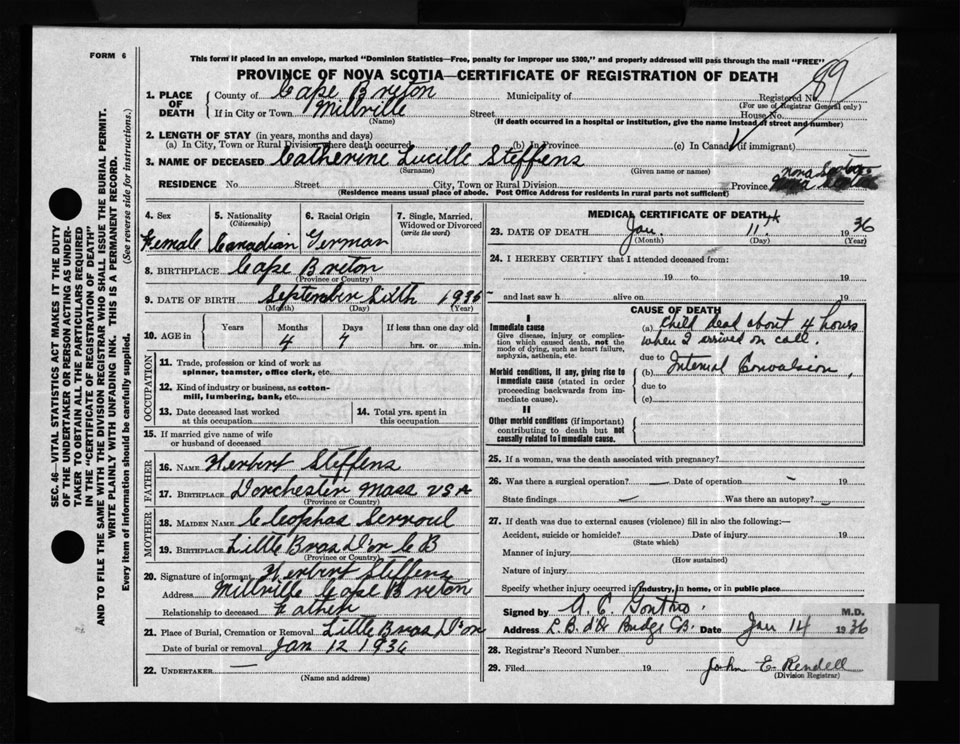 FORM 6
This form if placed in an envelope, marked "Dominion Statistics—Free, penalty for improper use $300," and properly addressed will pass through the mail "FREE"
PROVINCE OF NOVA SCOTIA—CERTIFICATE OF REGISTRATION OF DEATH
89
1. PLACE OF DEATH
County of Cape Breton Municipality of Registered No.
(For use of Registrar General only)
If in City or Town Millville Street House No.
(Name) (If death occurred in a hospital or institution, give the name instead of street and number)
2. LENGTH OF STAY (in years, months and days)
(a) In City, Town or Rural Division where death occurred (b) In Province (c) In Canada (if immigrant)
3. NAME OF DECEASED Catherine Lucille Steffens
(Surname) (Given name or names)
RESIDENCE No. Street City, Town or Rural Division Province Nova Scotia
(Residence means usual place of abode. Post Office Address for residents in rural parts not sufficient)
4. Sex Female
5. Nationality (Citizenship) Canadian
6. Racial Origin German
7. Single, Married, Widowed or Divorced (write the word)
8. BIRTHPLACE Cape Breton
(Province or Country)
9. DATE OF BIRTH September Sixth 1935
(Month) (Day) (Year)
10. AGE in Years Months Days If less than one day old
4 hrs. or min.
OCCUPATION
11. Trade, profession or kind of work as spinner, teamster, office clerk, etc.
12. Kind of industry or business, as cotton-mill, lumbering, bank, etc.
13. Date deceased last worked at this occupation
14. Total yrs. spent in this occupation
15. If married give name of wife or husband of deceased
FATHER
16. NAME Herbert Steffens
17. BIRTHPLACE Dorchester Mass USA
(Province or Country)
MOTHER
18. MAIDEN NAME Cleophas Serroul
19. BIRTHPLACE Little Bras D'or C B
(Province or Country)
20. Signature of informant Herbert Steffens
Address Millville Cape Breton
Relationship to deceased Father
21. Place of Burial, Cremation or Removal Little Bras D'or
Date of burial or removal Jan 12 1936
22. UNDERTAKER
(Name and address)
MEDICAL CERTIFICATE OF DEATH
23. DATE OF DEATH Jan. 11th 1936
(Month) (Day) (Year)
24. I HEREBY CERTIFY that I attended deceased from:
19 to 19
and last saw h alive on 19
CAUSE OF DEATH
I
Immediate cause
Give disease, injury or complication which caused death, not the mode of dying, such as heart failure, asphyxia, asthenia, etc.
(a) Child dead about 4 hours
when I arrived on call.
due to
Morbid conditions, if any, giving rise to immediate cause (stated in order proceeding backwards from immediate cause).
(b) Internal Convulsion,
due to
(c)
II
Other morbid conditions (if important) contributing to death but not causally related to immediate cause.
25. If a woman, was the death associated with pregnancy?
26. Was there a surgical operation? Date of operation 19
State findings Was there an autopsy?
27. If death was due to external causes (violence) fill in also the following:—
Accident, suicide or homicide? Date of injury 19
(State which)
Manner of injury
(How sustained)
Nature of injury
Specify whether injury occurred in industry, in home, or in public place
Signed by M.D.
Address L. B. d'Or Bridge C.B. Date Jan 14 1936
28. Registrar's Record Number
29. Filed 19 John E. Rendell
(Division Registrar)
SEC. 46—VITAL STATISTICS ACT MAKES IT THE DUTY
OF THE UNDERTAKER OR PERSON ACTING AS UNDER-
TAKER TO OBTAIN ALL THE PARTICULARS REQUIRED
IN THE "CERTIFICATE OF REGISTRATION OF DEATH"
AND TO FILE THE SAME WITH THE DIVISION REGISTRAR WHO SHALL ISSUE THE BURIAL PERMIT.
WRITE PLAINLY WITH UNFADING INK. THIS IS A PERMANENT RECORD.
Every item of information should be carefully supplied. (See reverse side for instructions.)